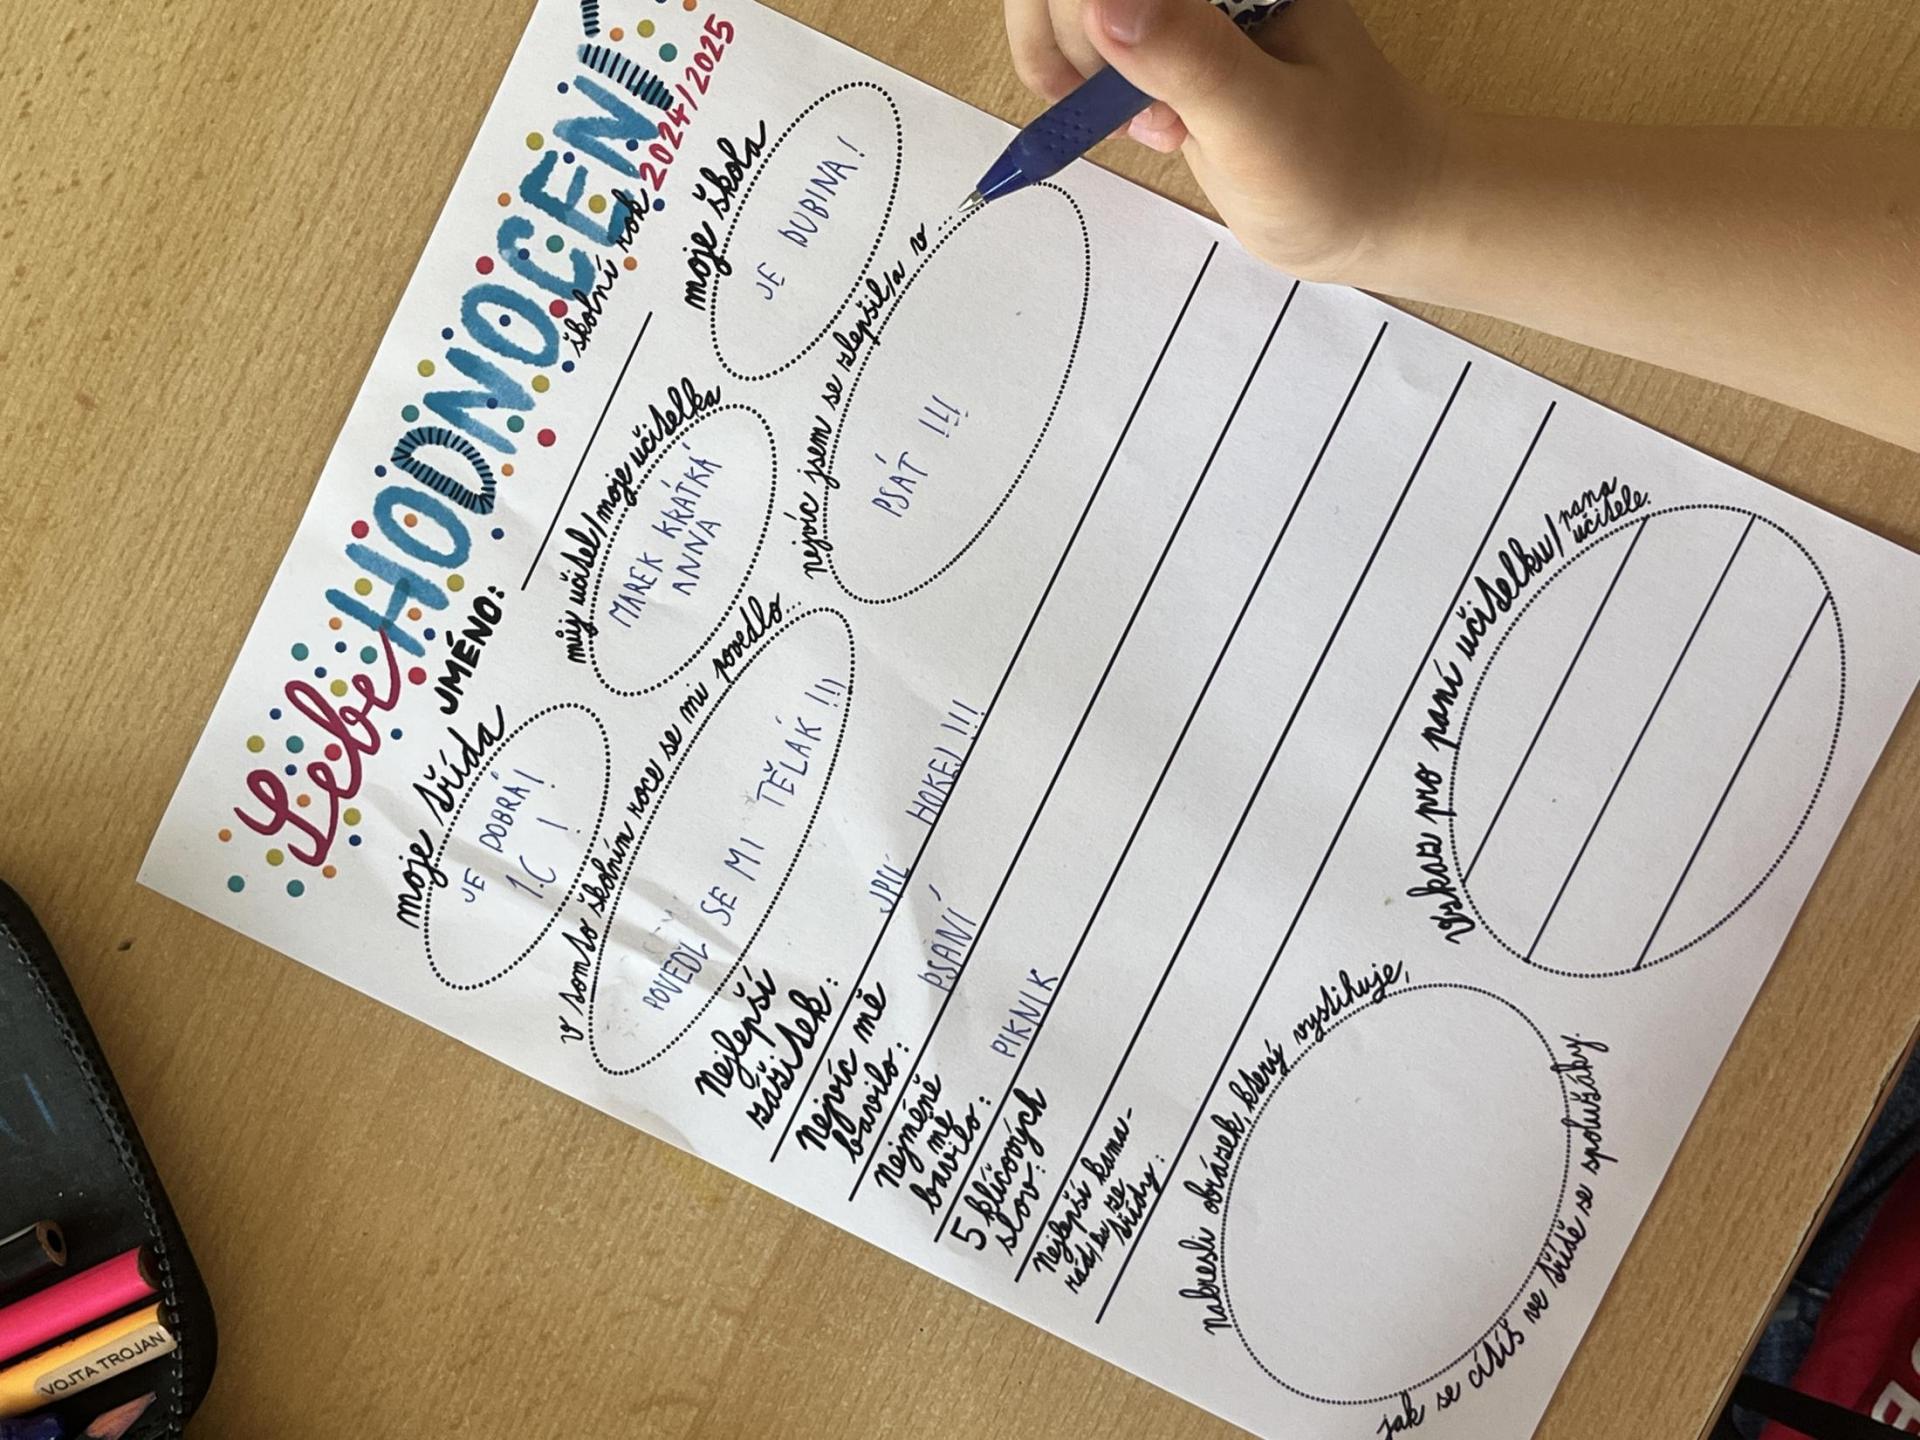 Sebe HODNOCENÍ
školní rok 2024/2025
JMÉNO:
moje třída
JE DOBRÁ!
1.C !
můj učitel/moje učitelka
MAREK KRÁTKÁ
ANNA
moje škola
JE DUBINA!
v tomto školním roce se mi povedlo...
POVEDL SE MI TĚLÁK !!!
nejvíc jsem se zlepšil/a v...
PSÁT !!!
Nejlepší
zážitek:
HOKEJ !!!
nejvíc mě
bavilo:
PSANÍ
Nejméně
mě
bavilo:
PIKNIK
5 klíčových
slov:
Nejlepší kama-
rád/ka ze
třídy:
Nakresli obrázek, který vystihuje,
jak se cítíš ve třídě se spolužáky.
Vzkaz pro paní učitelku/pana
učitele.
VOJTA TROJAN